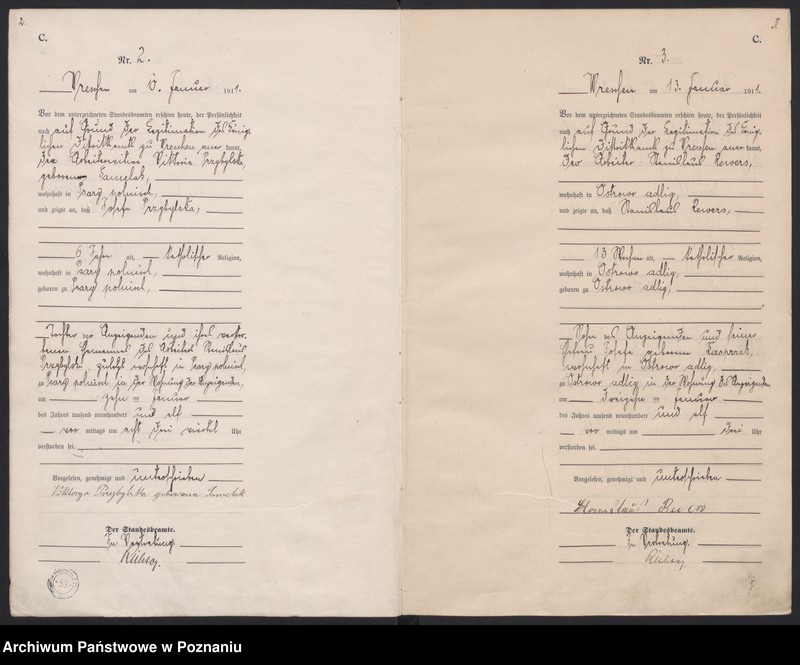 2
C.
Nr. 2.
Wreschen am 10. Januar 1911.
Vor dem unterzeichneten Standesbeamten erschien heute, der Persönlichkeit
nach auf Grund der Legitimation des König-
lichen Distriktsamts zu Wreschen anerkannt,
die Arbeiterwitwe Viktoria Przybylska,
geborene Samelak,
wohnhaft in Psary polnisch,
und zeigte an, daß Josefa Przybylska,
6 Jahre alt, katholischer Religion,
wohnhaft in Psary polnisch,
geboren zu Psary polnisch,
Tochter der Anzeigenden und ihres verstor-
benen Ehemannes des Arbeiters Stanislaus
Przybylski, zuletzt wohnhaft in Psary polnisch,
zu Psary polnisch in der Wohnung der Anzeigenden,
am zehnten Januar
des Jahres tausend neunhundert und elf
vor mittags um acht drei viertel Uhr
verstorben sei.
Vorgelesen, genehmigt und unterschrieben
Viktorya Przybylska geborena Samelak
Der Standesbeamte.
In Vertretung.
3
C.
Nr. 3.
Wreschen am 13. Januar 1911.
Vor dem unterzeichneten Standesbeamten erschien heute, der Persönlichkeit
nach auf Grund der Legitimation des König-
lichen Distriktsamts zu Wreschen anerkannt,
der Arbeiter Stanislaus Rewers,
wohnhaft in Ostrowo adlig,
und zeigte an, daß Stanislaus Rewers,
13 Wochen alt, katholischer Religion,
wohnhaft in Ostrowo adlig,
geboren zu Ostrowo adlig,
Sohn des Anzeigenden und seiner
Ehefrau Josefa geborenen
wohnhaft in Ostrowo adlig,
zu Ostrowo adlig in der Wohnung des Anzeigenden
am dreizehnten Januar
des Jahres tausend neunhundert und elf
vor mittags um drei Uhr
verstorben sei.
Vorgelesen, genehmigt und unterschrieben
Der Standesbeamte.
In Vertretung.
Archiwum Państwowe w Poznaniu